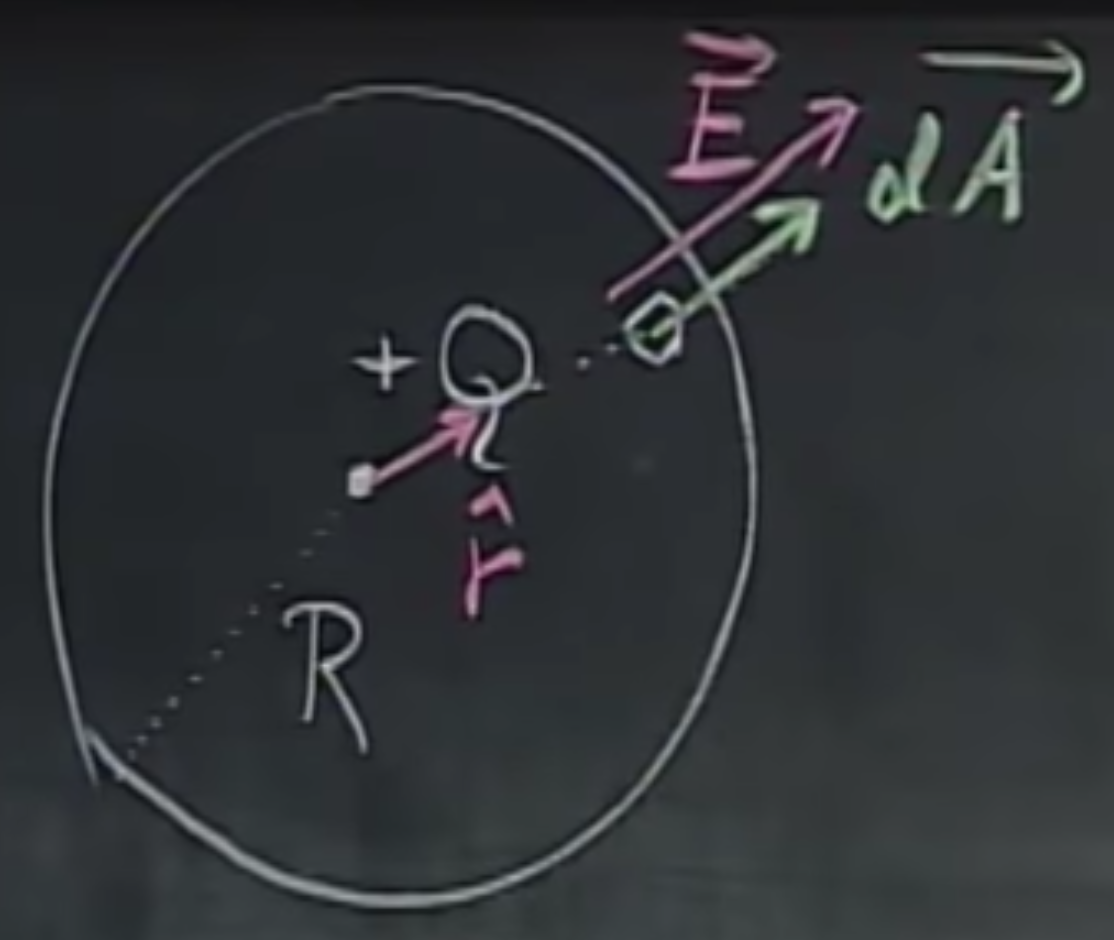 E⃗
dA⃗
+Q
r̂
R